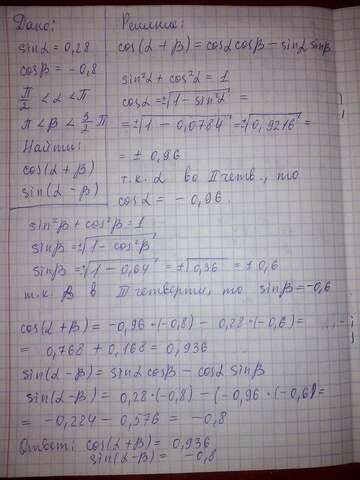 Дано:
sinα = 0,28
cosβ = -0,8
π/2 < α < π
π < β < 3/2 π
Найти:
cos(α + β)
sin(α - β)
Решение:
cos(α + β) = cosα cosβ - sinα sinβ
sin²α + cos²α = 1
cosα = ±√1 - sin²α =
= ±√1 - 0,0784 = ±√0,9216 =
= ± 0,96
т.к. α во II четв., то
cosα = - 0,96.
sin²β + cos²β = 1
sinβ = ±√1 - cos²β
sinβ = ±√1 - 0,64 = ±√0,36 = ± 0,6
т.к. β в III четверти, то sinβ = -0,6
cos(α + β) = -0,96 · (-0,8) - 0,28 · (-0,6) =
= 0,768 + 0,168 = 0,936
sin(α - β) = sinα cosβ - cosα sinβ
sin(α - β) = 0,28 · (-0,8) - (-0,96 · (-0,6) =
= -0,224 - 0,576 = -0,8
Ответ: cos(α + β) = 0,936
sin(α - β) = -0,8